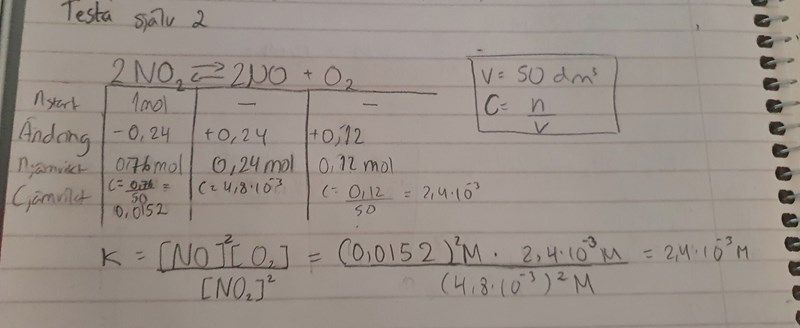 Testa själv 2
2NO₂ ⇌ 2NO + O₂
V = 50 dm³
C = n/V
nstart 1mol – –
Ändring -0,24 +0,24 +0,12
njämvikt 0,76 mol 0,24 mol 0,12 mol
Cjämvikt C = 0,76/50 = 0,0152 C = 4,8·10⁻³ C = 0,12/50 = 2,4·10⁻³
K = [NO]²[O₂]/[NO₂]² = (0,0152)²M · 2,4·10⁻³M/(4,8·10⁻³)²M = 2,4·10⁻³M